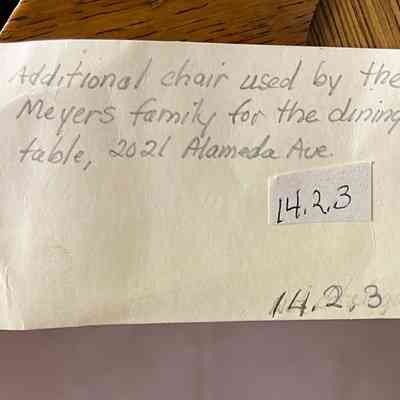 Additional chair used by the
Meyers family for the dining
table, 2021 Alameda Ave.
14.2.3
14.2.3